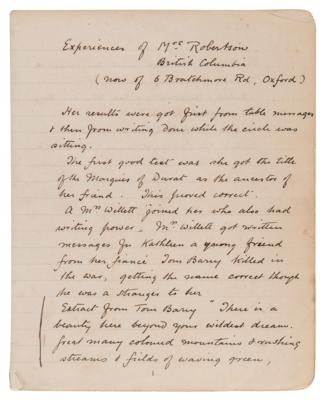 Experiences of Mrs Robertson
British Columbia
(now of 6 Bratchmore Rd, Oxford)
Her results were got first from table messages
& then from writing done while the circle was
sitting.
The first good test was she got the title
of the Marquis of Durat as the ancestor of
her friend. This proved correct.
A Mrs Willett joined her who also had
writing power. Mrs Willett got written
messages for Kathleen a young friend
from her fiancé Tom Barry killed in
the war, getting the name correct though
he was a stranger to her
Extract from Tom Barry "There is a
beauty here beyond your wildest dream.
Great many coloured mountains & rushing
streams & fields of waving green,